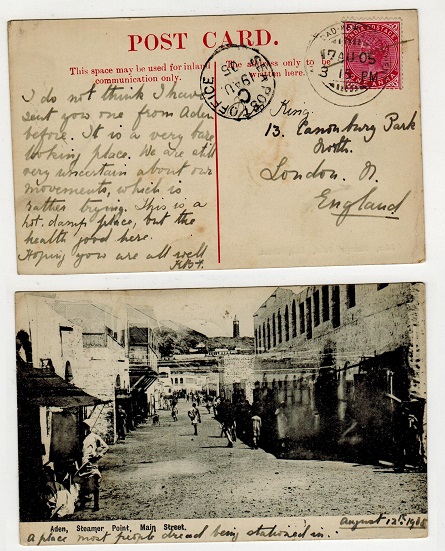 POST CARD.
This space may be used for inland
communication only.
The address only to be
written here.
17 AU 05
3 15 PM
SEA POST OFFICE
C
19 AU
05
I do not think I have
sent you one from Aden
before. It is a very bare
looking place. We are still
very uncertain about our
movements, which is
rather trying. This is a
hot, damp place, but the
health good here.
Hoping you are all well
King.
13. Canonbury Park
North.
London. N.
England
Aden, Steamer Point, Main Street.
August 12th 1905
A place most people dread being stationed in.